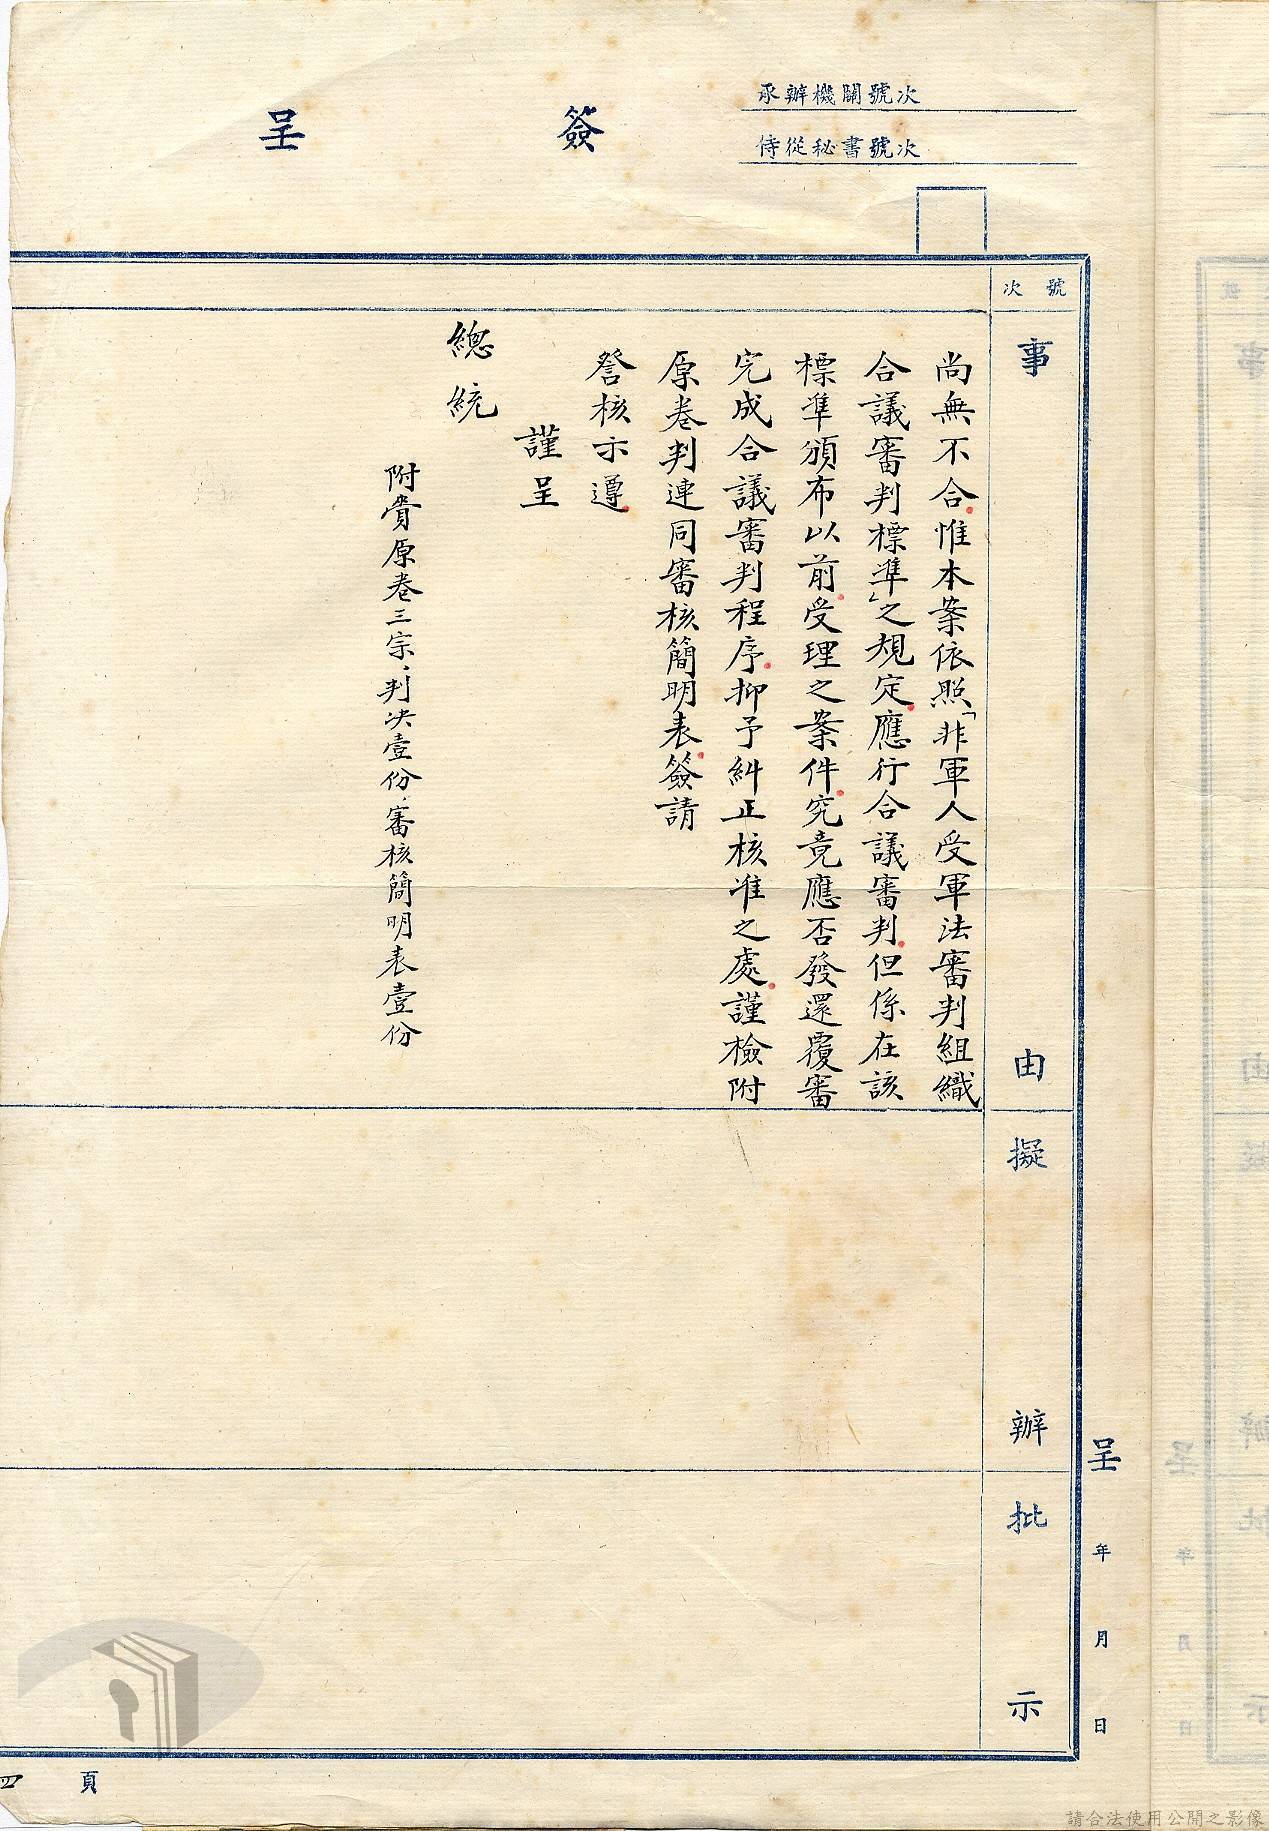 簽呈
承辦機關號次
侍從秘書號次
號次
事由
擬辦
批示
尚無不合惟本案依照「非軍人受軍法審判組織
合議審判標準」之規定應行合議審判但係在該
標準頒布以前受理之案件究竟應否發還覆審
完成合議審判程序抑予糾正核准之處謹檢附
原卷判連同審核簡明表簽請
詧核示遵
謹呈
總統
附賫原卷三宗、判決壹份、審核簡明表壹份
呈 年 月 日
四 頁
請合法使用公開之影像